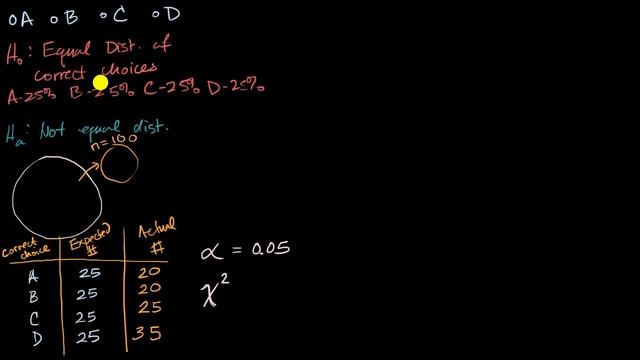 A B C D
H₀: Equal Dist. of
correct choices
A-25% B-25% C-25% D-25%
Hₐ: Not equal dist.
n=100
correct choice Expected # Actual #
A 25 20
B 25 20
C 25 25
D 25 35
α = 0.05
χ²